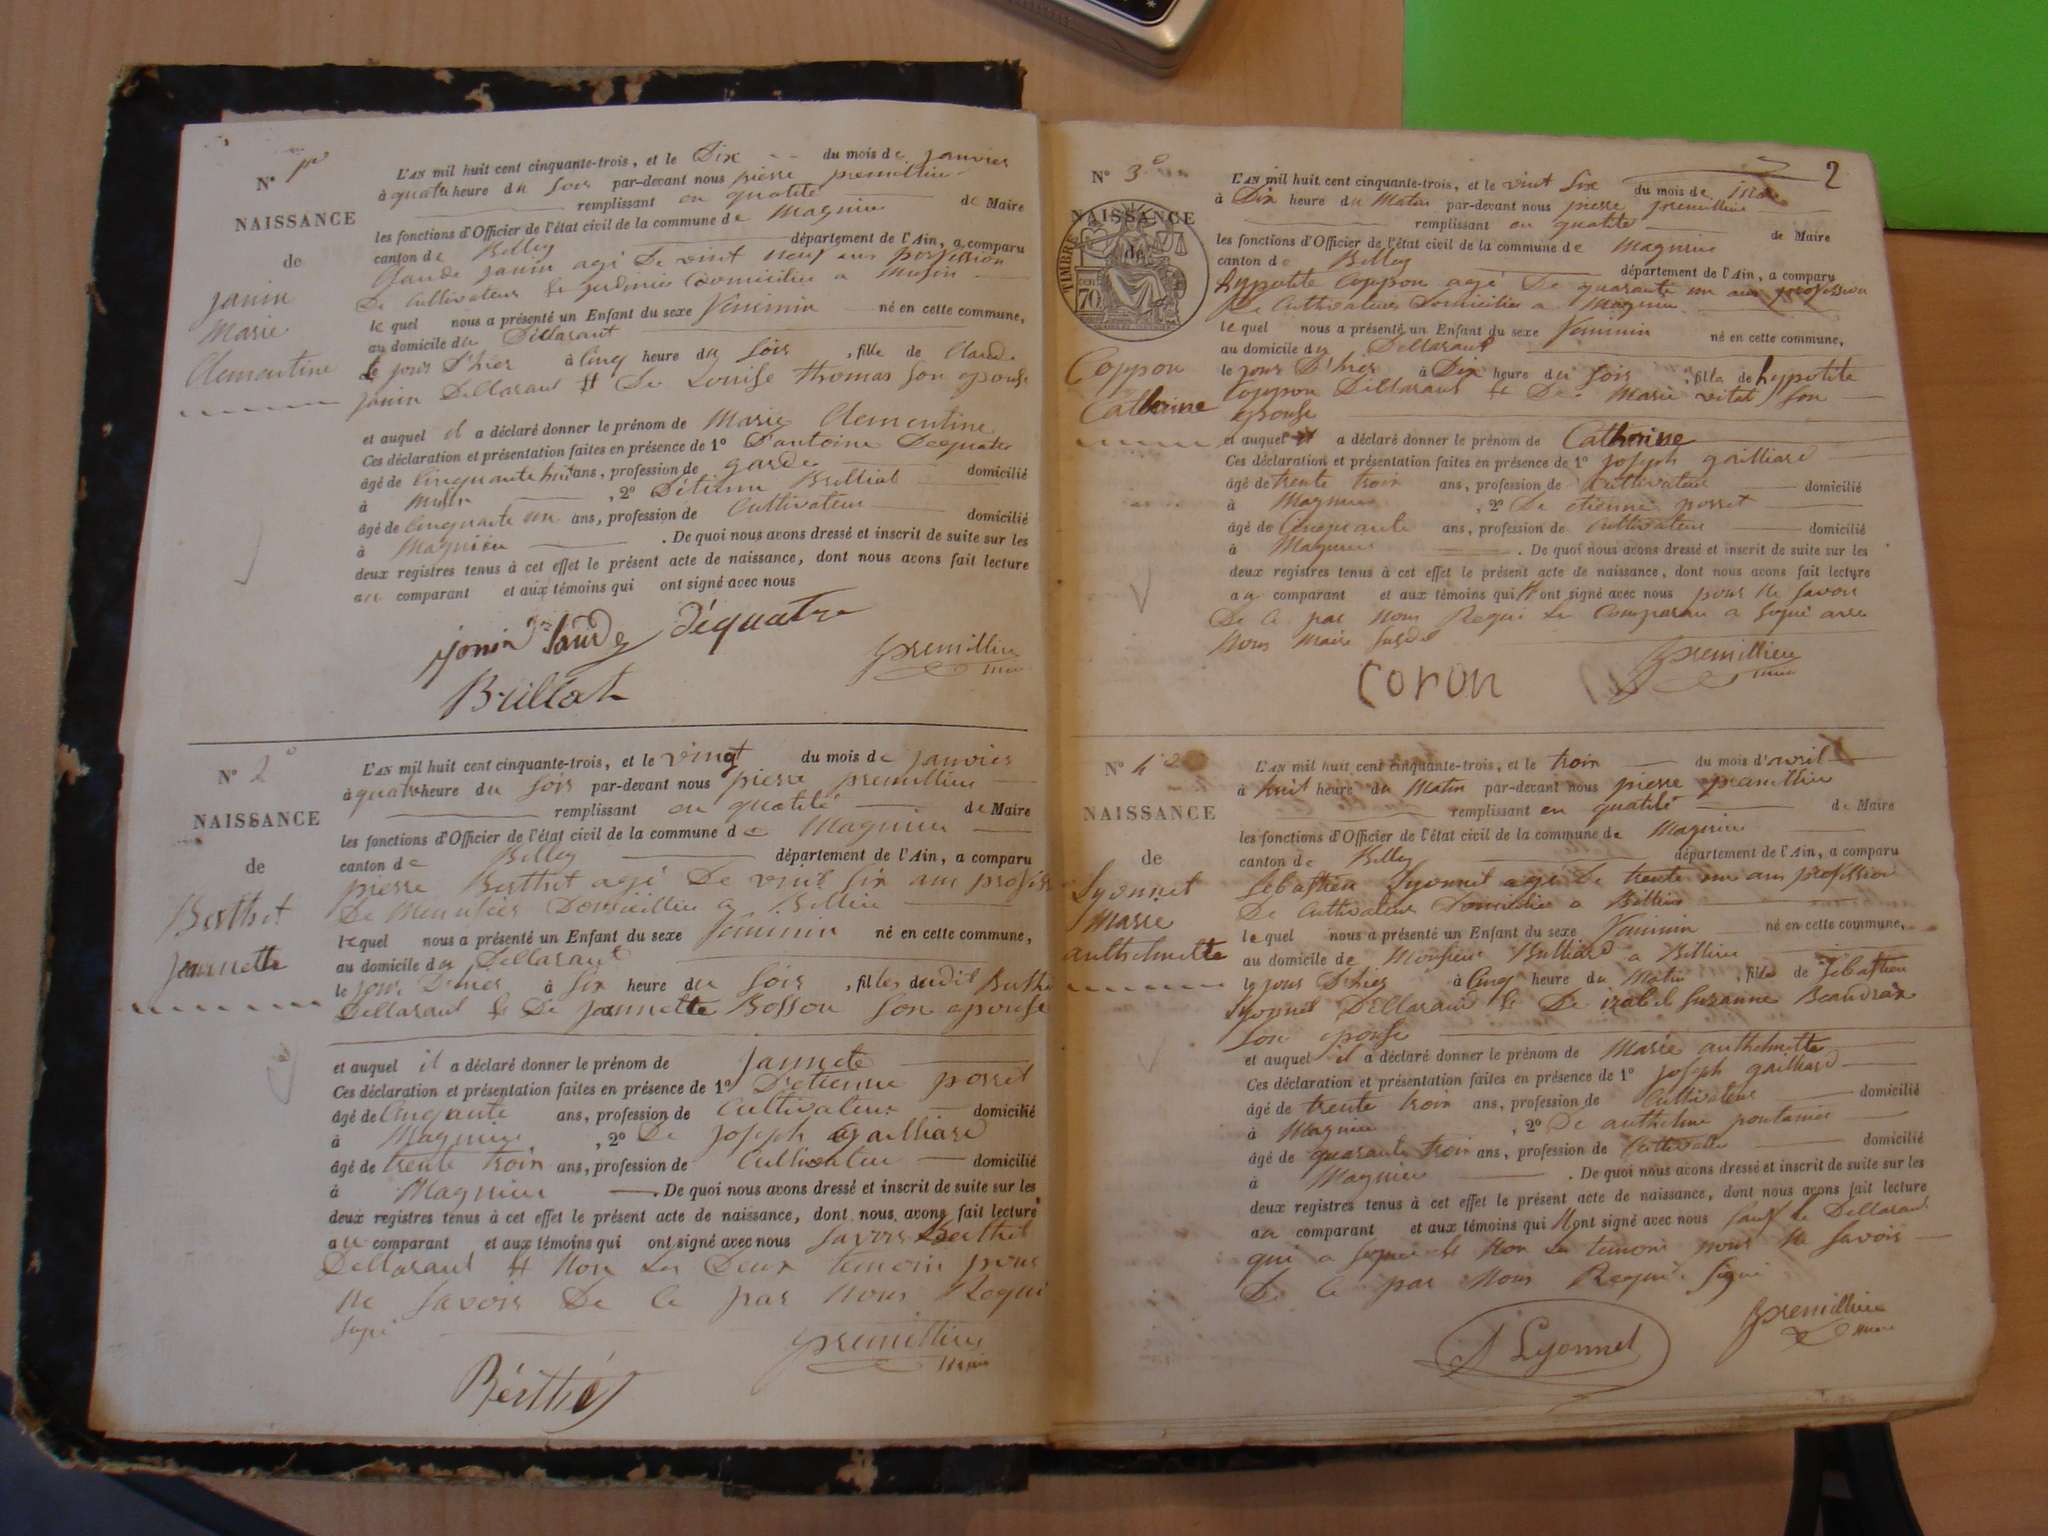 N° 1er
NAISSANCE
de
janin
Marie
Clementine
L'AN mil huit cent cinquante-trois, et le Dix du mois de janvier
à quatre heure du Soir par-devant nous pierre premillieu
remplissant en qualité de Maire
les fonctions d'Officier de l'état civil de la commune de Magnieu
canton de Belley département de l'Ain, a comparu
Claude janin agé De vint neuf ans profession
De Cultivateur & jardinier Domicilié a Musin
le quel nous a présenté un Enfant du sexe Feminin né en cette commune,
au domicile du Déllarant
le jour D'hier à Cinq heure du Soir, fille de Claude
janin Dellarant & De Louise thomas Son epouse
et auquel il a déclaré donner le prénom de Marie Clementine
Ces déclaration et présentation faites en présence de 1° D'antoine Dequatre
âgé de Cinquante huit ans, profession de garde domicilié
à Musin, 2° D'étienne Brilliat
âgé de Cinquante un ans, profession de Cultivateur domicilié
à Magnieu. De quoi nous avons dressé et inscrit de suite sur les
deux registres tenus à cet effet le présent acte de naissance, dont nous avons fait lecture
au comparant et aux témoins qui ont signé avec nous
janin Claude Déquatre
premillieu
maire
Brillat
N° 2°
NAISSANCE
de
Berthet
jeannette
L'AN mil huit cent cinquante-trois, et le vingt du mois de janvier
à quatre heure du Soir par-devant nous pierre premillieu
remplissant en qualité de Maire
les fonctions d'Officier de l'état civil de la commune de Magnieu
canton de Belley département de l'Ain, a comparu
pierre Berthet agé De vint Six ans profess
De Meunier Domicillié a Billieu
le quel nous a présenté un Enfant du sexe Feminin né en cette commune,
au domicile du Dellarant
le jour D'hier à Six heure du Soir, fille dudit Berthe
Dellarant & De jeannette Bosson Son epouse
et auquel il a déclaré donner le prénom de jannete
Ces déclaration et présentation faites en présence de 1° D'etienne porret
âgé de Cinqante ans, profession de Cultivateur domicilié
à Magnieu, 2° De joseph gailliard
âgé de trente troix ans, profession de Cultivateur domicilié
à Magnieu. De quoi nous avons dressé et inscrit de suite sur les
deux registres tenus à cet effet le présent acte de naissance, dont nous avons fait lecture
au comparant et aux témoins qui ont signé avec nous Savoir Berthet
Dellarant & Non Les Deux temoin pour
ne Savoir De Ce par Nous Requi
Sigué
premillieu
maire
Bérthet
2
N° 3°
NAISSANCE
de
TIMBRE
70
Coppon
Catherine
L'AN mil huit cent cinquante-trois, et le vint Six du mois de
à Dix heure du Matin par-devant nous pierre premillieu
remplissant en qualité de Maire
les fonctions d'Officier de l'état civil de la commune de Magnieu
canton de Belley département de l'Ain, a comparu
hypolite Coppon agé De quarante un ans profession
De Cultivateur Domicilié a Magnieu
le quel nous a présenté un Enfant du sexe Feminin né en cette commune,
au domicile du Dellarant
le jour D'hier à Dix heure du Soir, fille de hypolite
Coppon Dellarant & De Marie vital Son
epouse
et auquel il a déclaré donner le prénom de Catherine
Ces déclaration et présentation faites en présence de 1° joseph gailliard
âgé de trente troix ans, profession de Cultivateur domicilié
à Magnieu, 2° De etienne porret
âgé de Cinquante ans, profession de Cultivateur domicilié
à Magnieu. De quoi nous avons dressé et inscrit de suite sur les
deux registres tenus à cet effet le présent acte de naissance, dont nous avons fait lecture
au comparant et aux témoins qui ont signé avec nous pour ne Savoir
De Ce par Nous Requi Le Comparan a Sigué avec
Nous Maire
coron premillieu
maire
N° 4°
NAISSANCE
de
Lyonnet
Marie
anthelmette
L'AN mil huit cent cinquante-trois, et le troix du mois d'avril
à huit heure du Matin par-devant nous pierre premillieu
remplissant en qualité de Maire
les fonctions d'Officier de l'état civil de la commune de Magnieu
canton de Belley département de l'Ain, a comparu
Sebastien Lyonnet agé De trente un ans profession
De Cultivateur Domicilié a Billieu
le quel nous a présenté un Enfant du sexe Feminin né en cette commune,
au domicile de Monsieur Bulliard a Billieu
le jour D'hier à Cinq heure du Matin, fille de Sebastien
Lyonnet Dellarant & De izabel Suzanne Beaudras
Son epouse
et auquel il a déclaré donner le prénom de Marie anthelmette
Ces déclaration et présentation faites en présence de 1° joseph gailliard
âgé de trente troix ans, profession de Cultivateur domicilié
à Magnieu, 2° De anthelme pontanier
âgé de quarante troix ans, profession de Cultivateur domicilié
à Magnieu. De quoi nous avons dressé et inscrit de suite sur les
deux registres tenus à cet effet le présent acte de naissance, dont nous avons fait lecture
au comparant et aux témoins qui ont signé avec nous Sauf le Dellarant
qui a Sigué & Non Les temoins pour ne Savoir
De Ce par Nous Requi Sigué
Lyonnet
premillieu
maire